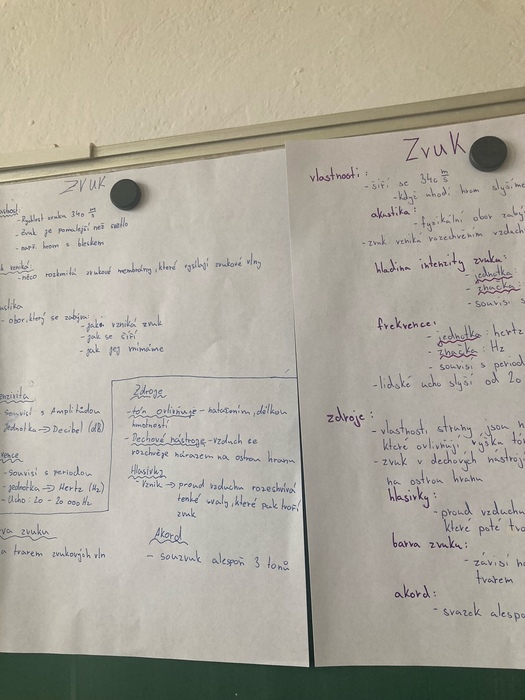 ZVUK
- Rychlost zvuku 340 m/s
- Zvuk je pomalejší než světlo
- např. hrom s bleskem
vzniká:
- něco rozkmitá zvukové membrány, které vysílají zvukové vlny
ustika
- obor, který se zabývá:
- jak vzniká zvuk
- jak se šíří
- jak jej vnímáme
enzivita
- souvisí s Amplitůdou
- jednotka → Decibel (dB)
vence
- souvisí s periodou
- jednotka → Hertz (Hz)
- Ucho: 20 - 20 000 Hz
va zvuku
a tvarem zvukových vln
Zdroje
- tón ovlivňuje - natažením, délkou
hmotností
- Dechové nástroje - vzduch se
rozechvěje nárazem na ostrou hranu
Hlasivky
- Vznik → proud vzduchu rozechvívá
tenké svaly, které pak tvoří
zvuk
Akord
- souzvuk alespoň 3 tónů
Zvuk
vlastnosti:
- šíří se 340 m/s
- když uhodí hrom slyšíme
akustika:
- fyzikální obor zabý
- zvuk vzniká rozechvěním vzduch
hladina intenzity zvuku:
- jednotka
- značka:
- souvisí s
frekvence:
- jednotka: hertz
- značka: Hz
- souvisí s period
- lidské ucho slyší od 20
zdroje:
- vlastnosti struny jsou h
které ovlivňují výšku tó
- zvuk v dechových nástrojí
na ostrou hranu
hlasivky:
- proud vzduchu
které poté tvo
barva zvuku:
- závisí na
tvarem
akord:
- svazek alespo